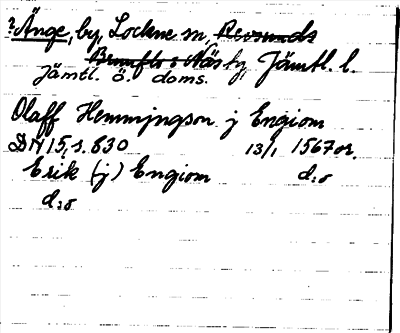 ? Änge, by, Lockne sn, Revsunds
Brunflo o Näs tg, Jämtl. l.
Jämtl. ö. doms.
Olaff Hemmingson j Engiom
DN 15, s. 830 13/1 1567 or.
Erik (j) Engiom d:o
d:o